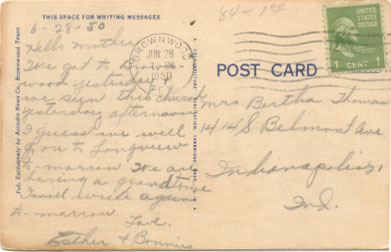 THIS SPACE FOR WRITING MESSAGES
6-28-50
Hello Mother,
We got to Brown-
wood yesterday
we seen this church
yesterday afternoon
I guess we will
go on to Longview
to-morrow. We are
having a grand time
I will write again
to-morrow.
Love,
Esther & Bonnie
Pub. Exclusively by Arcadia News Co., Brownwood, Texas
84-1.00
BROWNWOOD
JUN 28
1950
TEX.
UNITED STATES POSTAGE
1 CENT 1
POST CARD
Mrs Bertha Thomas
1414 S. Belmont Ave
Indianapolis,
Ind.